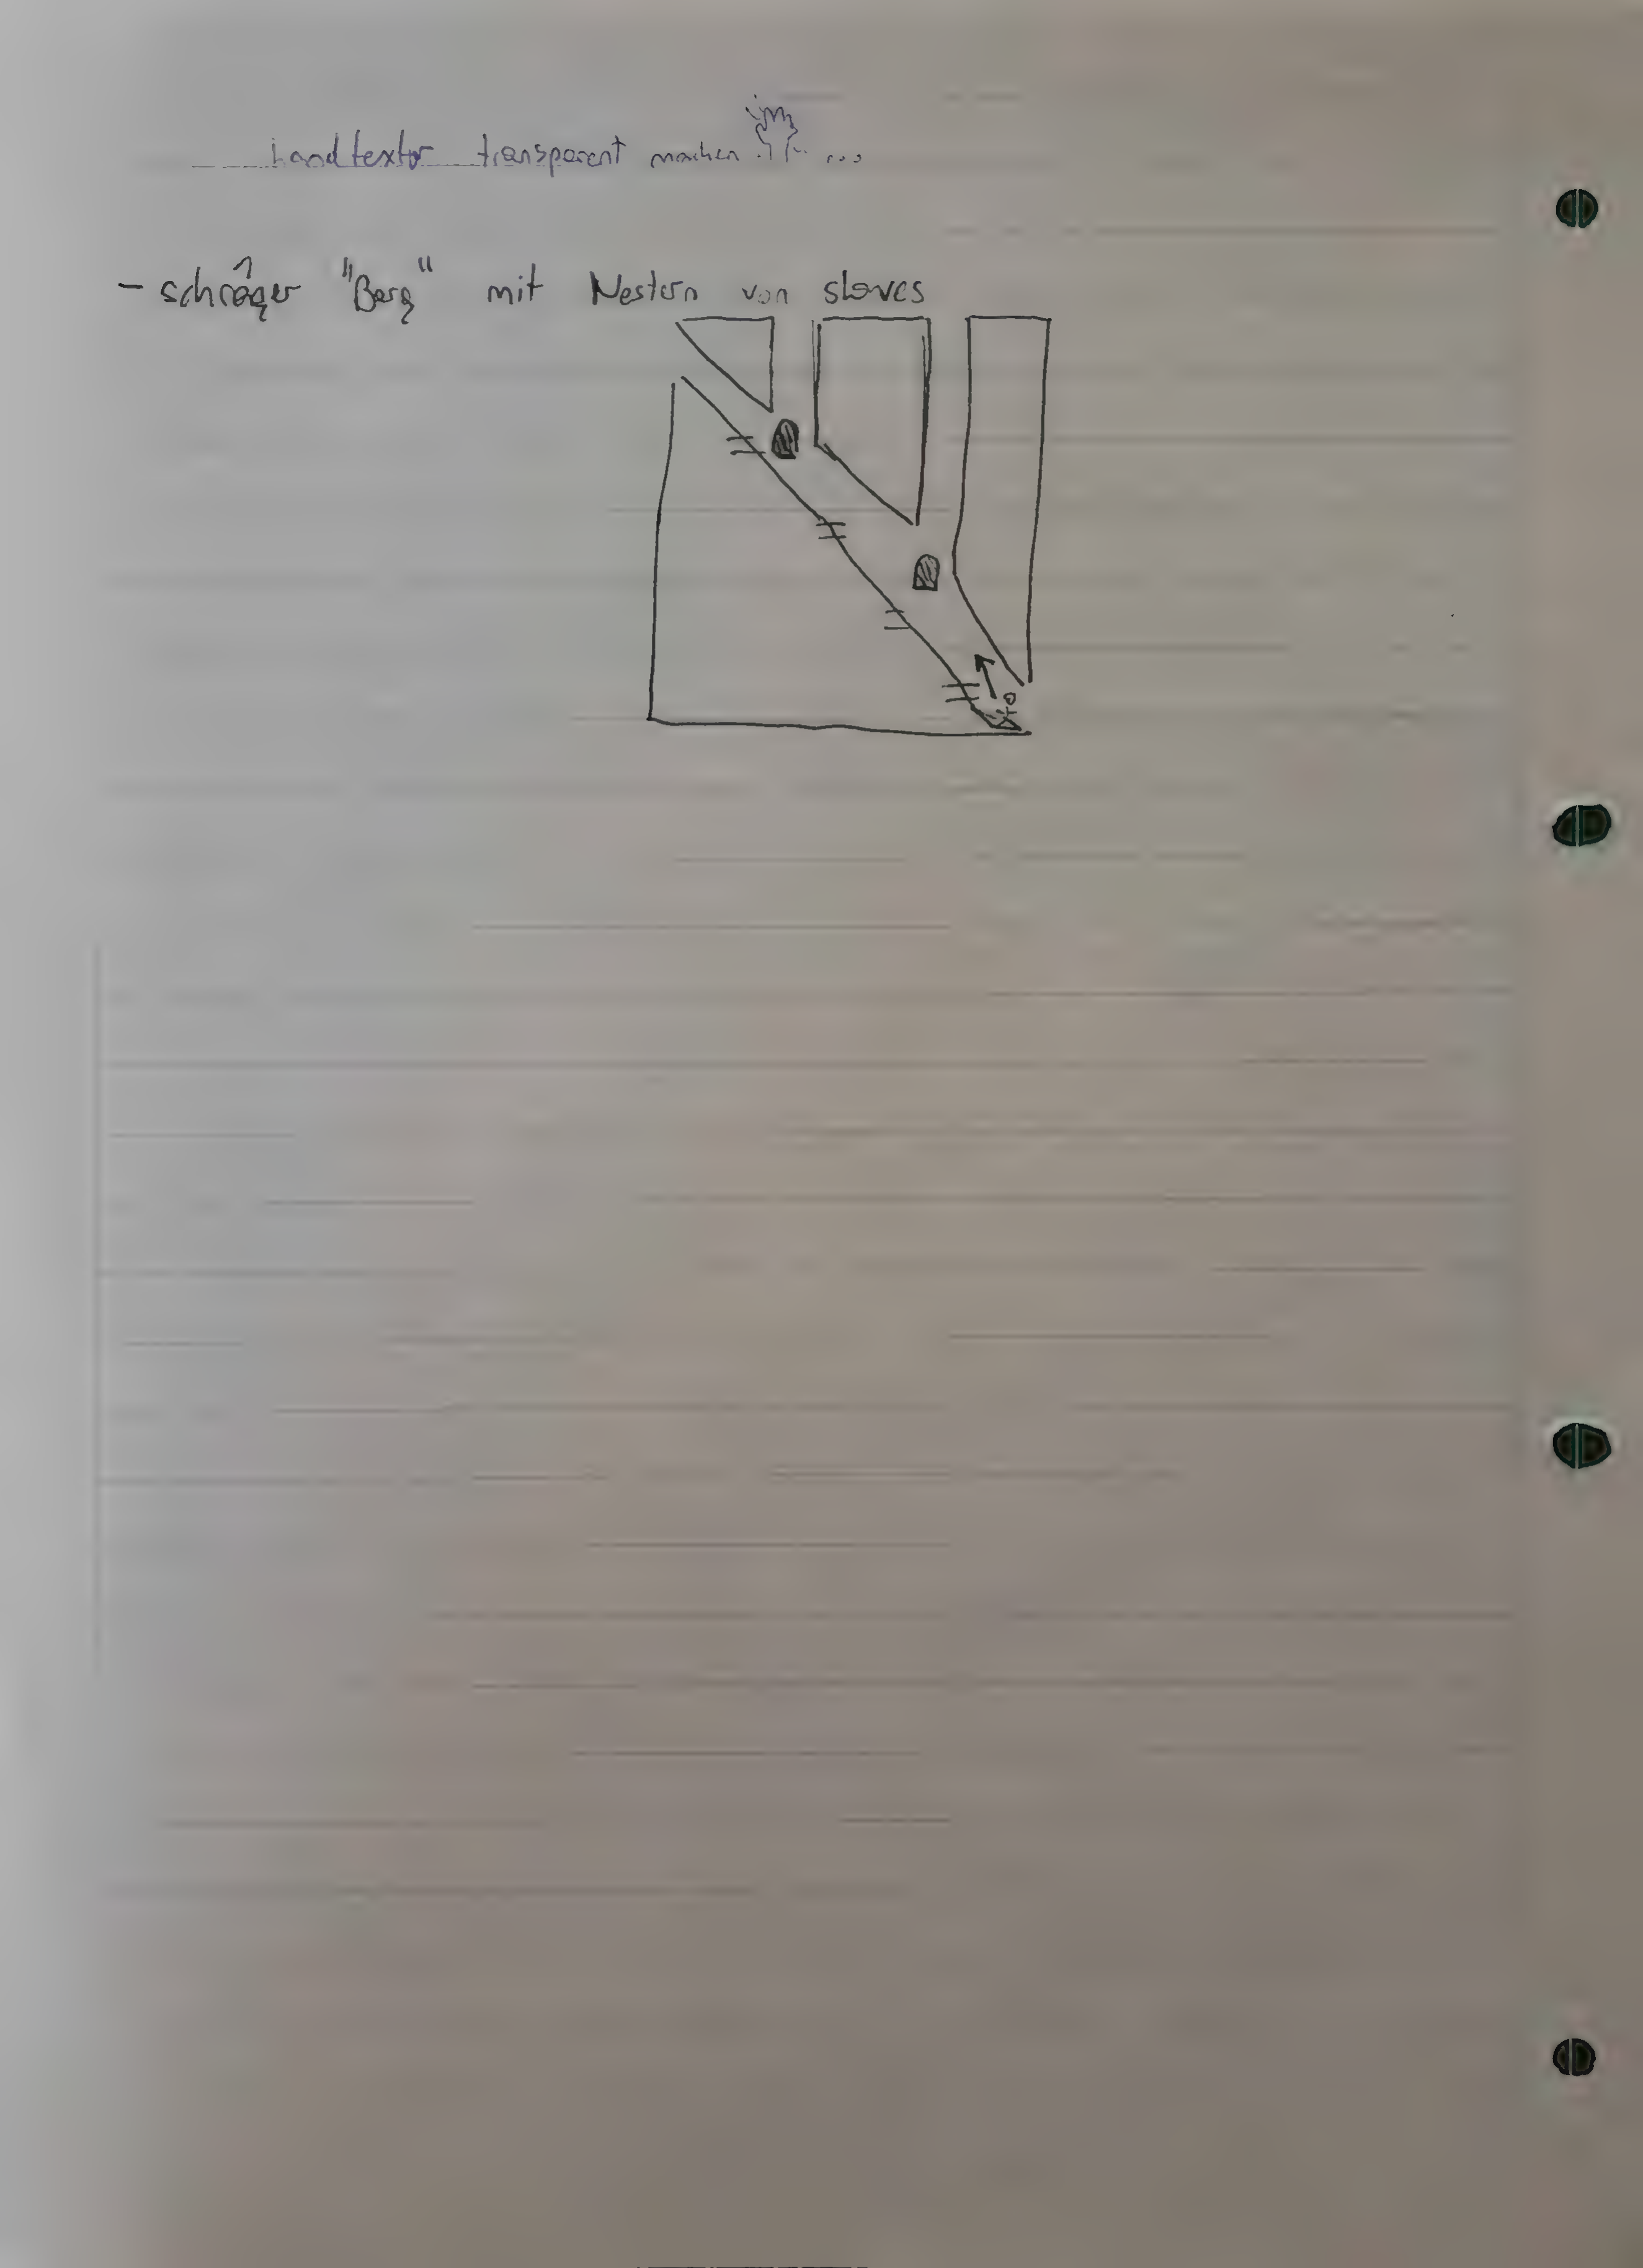 handtextur transparent machen ...
- schräger "Berg" mit Nestern von slaves